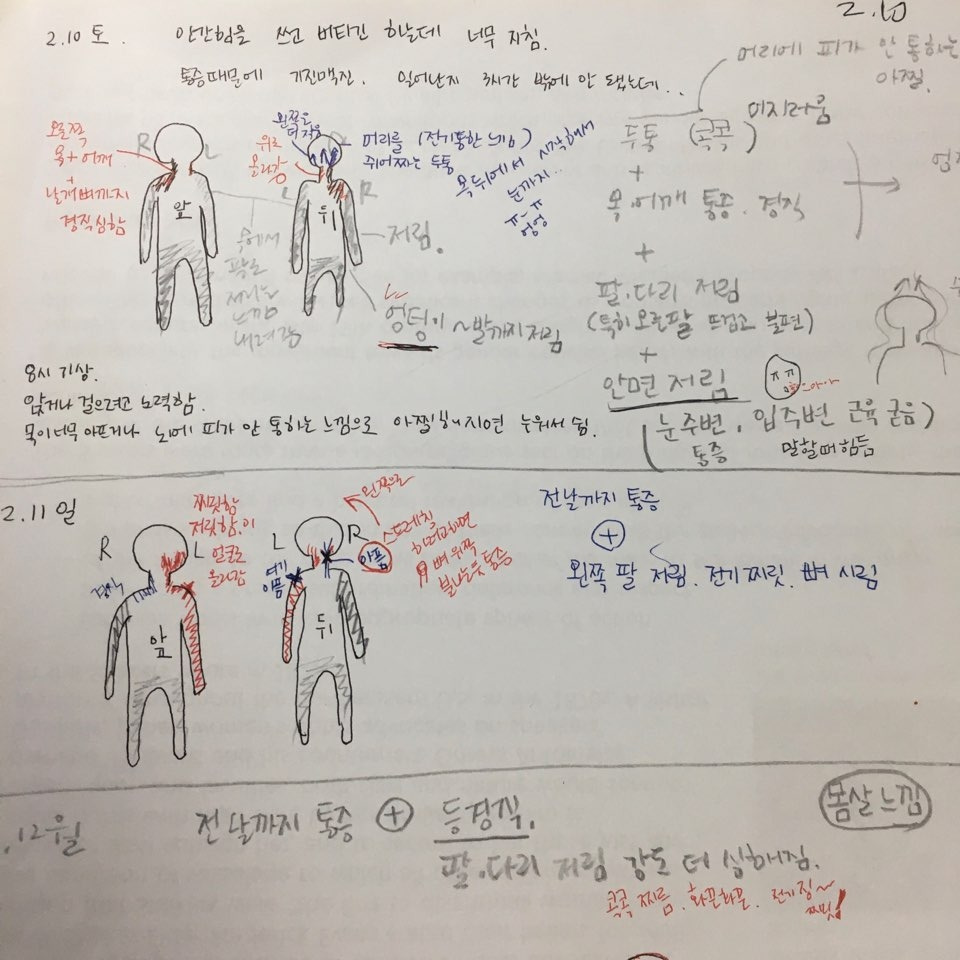 2.10 토. 안간힘을 쓰면 버티긴 하는데 너무 지침.
통증때문에 기진맥진. 일어난지 3시간 밖에 안 됐는데..
2.10
머리에 피가 안 통하는
아찔.
어지러움
두통 (콕콕)
+
목.어깨 통증. 경직
+
팔.다리 저림
(특히 오른팔 뜨겁고 불편)
+
안면 저림
ㅠㅠ
(눈주변, 입주변 근육 굳음)
통증
말할때 힘듬
오른쪽
목+어깨
+
날개뼈까지
경직심함
R
L
앞
왼쪽은
더 작음
위로
올라감
머리를 (전기통한 느낌)
쥐어짜는 두통
목뒤에서 시작해서
눈까지...
ㅠ-ㅠ
엉엉
L
R
뒤
저림.
목에서
팔로
저리는
느낌
내려감
엉덩이 ~발까지 저림
8시 기상.
앉거나 걸으려고 노력함.
목이 너무 아프거나 뇌에 피가 안 통하는 느낌으로 아찔해지면 누워서 쉼.
2.11 일
찌릿함
저릿함이
얼굴로
올라감
R
L
경직
앞
L
R
왼쪽으로
스트레칭
하려고하면
뼈 위쪽
불나는듯 통증
아픔
여기
아픔
뒤
전날까지 통증
+
왼쪽 팔 저림. 전기 찌릿. 뼈 시림
.12 월
전날까지 통증 + 등경직.
몸살 느낌
팔.다리 저림 강도 더 심해짐.
콕콕 찌름. 화끈화끈. 전기 찡~
찌릿!